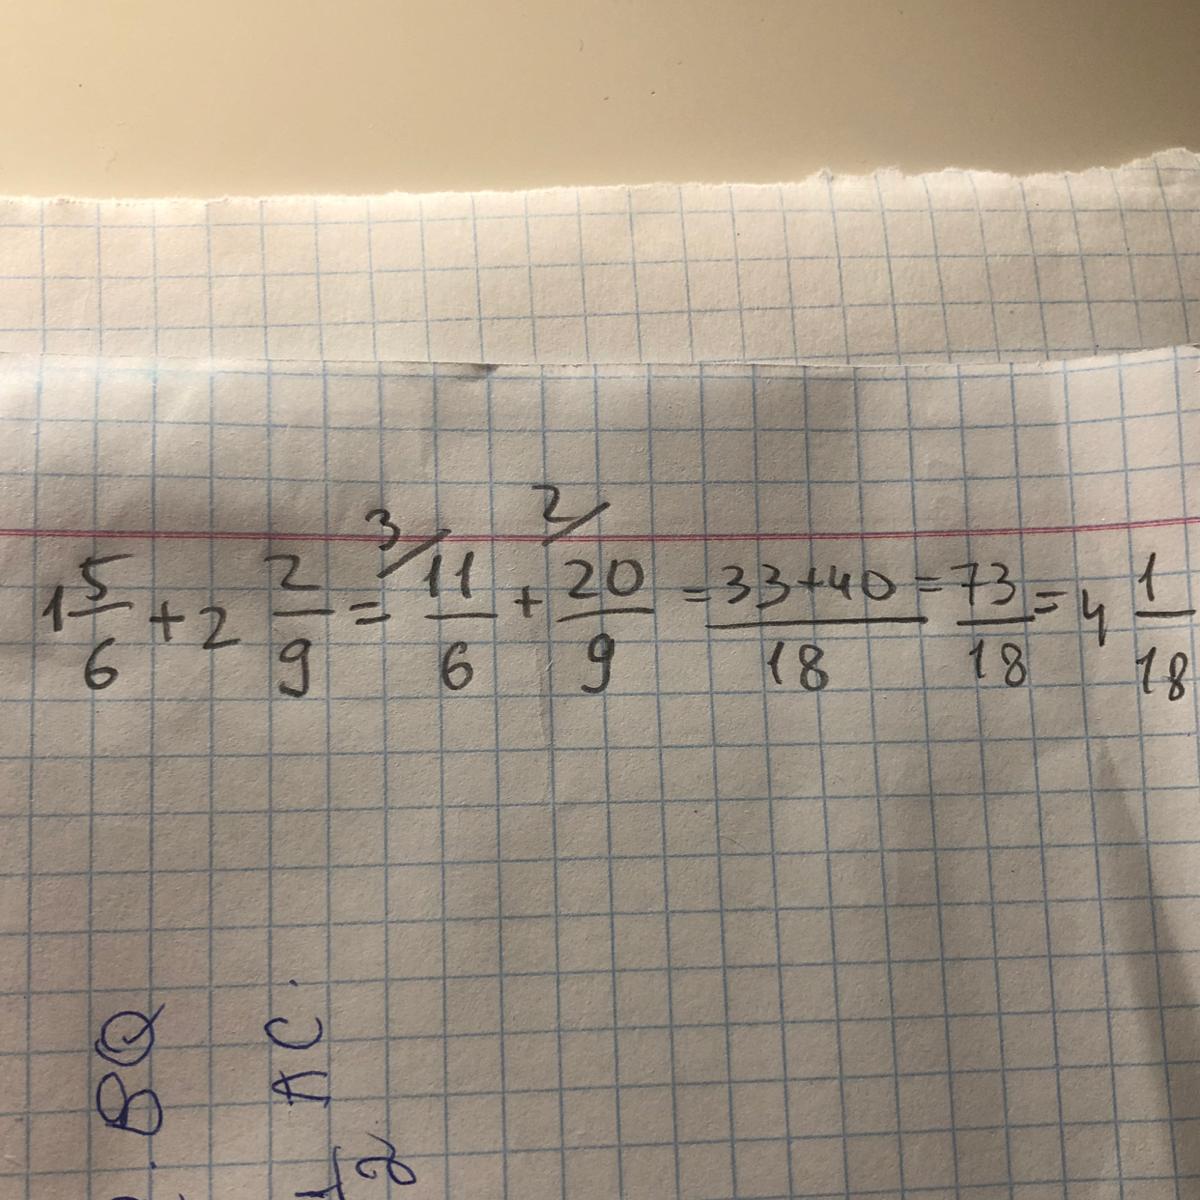 1 5/6 + 2 2/9 = 3/ 11/6 + 2/ 20/9 = 33+40/18 = 73/18 = 4 1/18
BQ
AC.